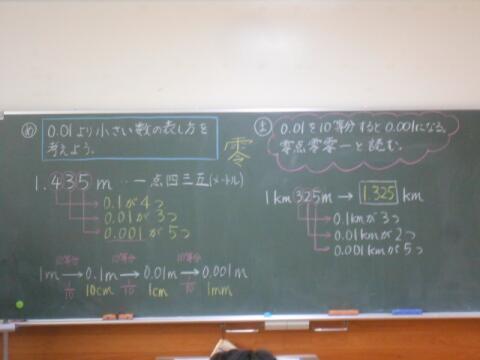 め 0.01より小さい数の表し方を
考えよう。
零
1.435m‥一点四三五(メートル)
0.1が4つ
0.01が3つ
0.001が5つ
10等分 10等分 10等分
1m→0.1m→0.01m→0.001m
1/10 10cm 1/10 1cm 1/10 1mm
ま 0.01を10等分すると0.001になる。
零点零零一と読む。
1km325m→1.325km
0.1kmが3つ
0.01kmが2つ
0.001kmが5つ